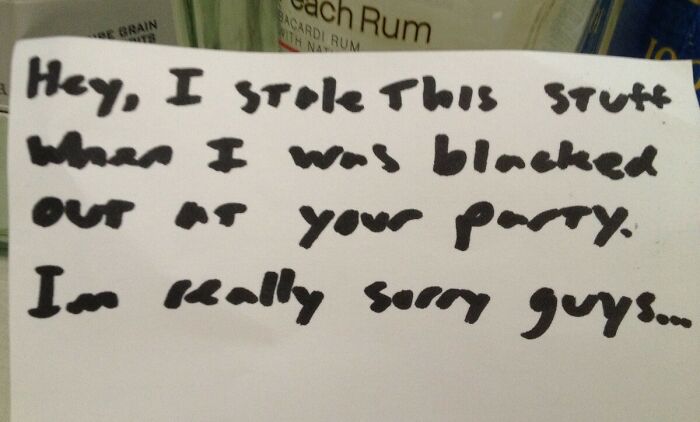 each Rum
BACARDI RUM
WITH NAT
GRAIN
Hey, I stole this stuff
when I was blacked
out at your party.
Im really sorry guys...